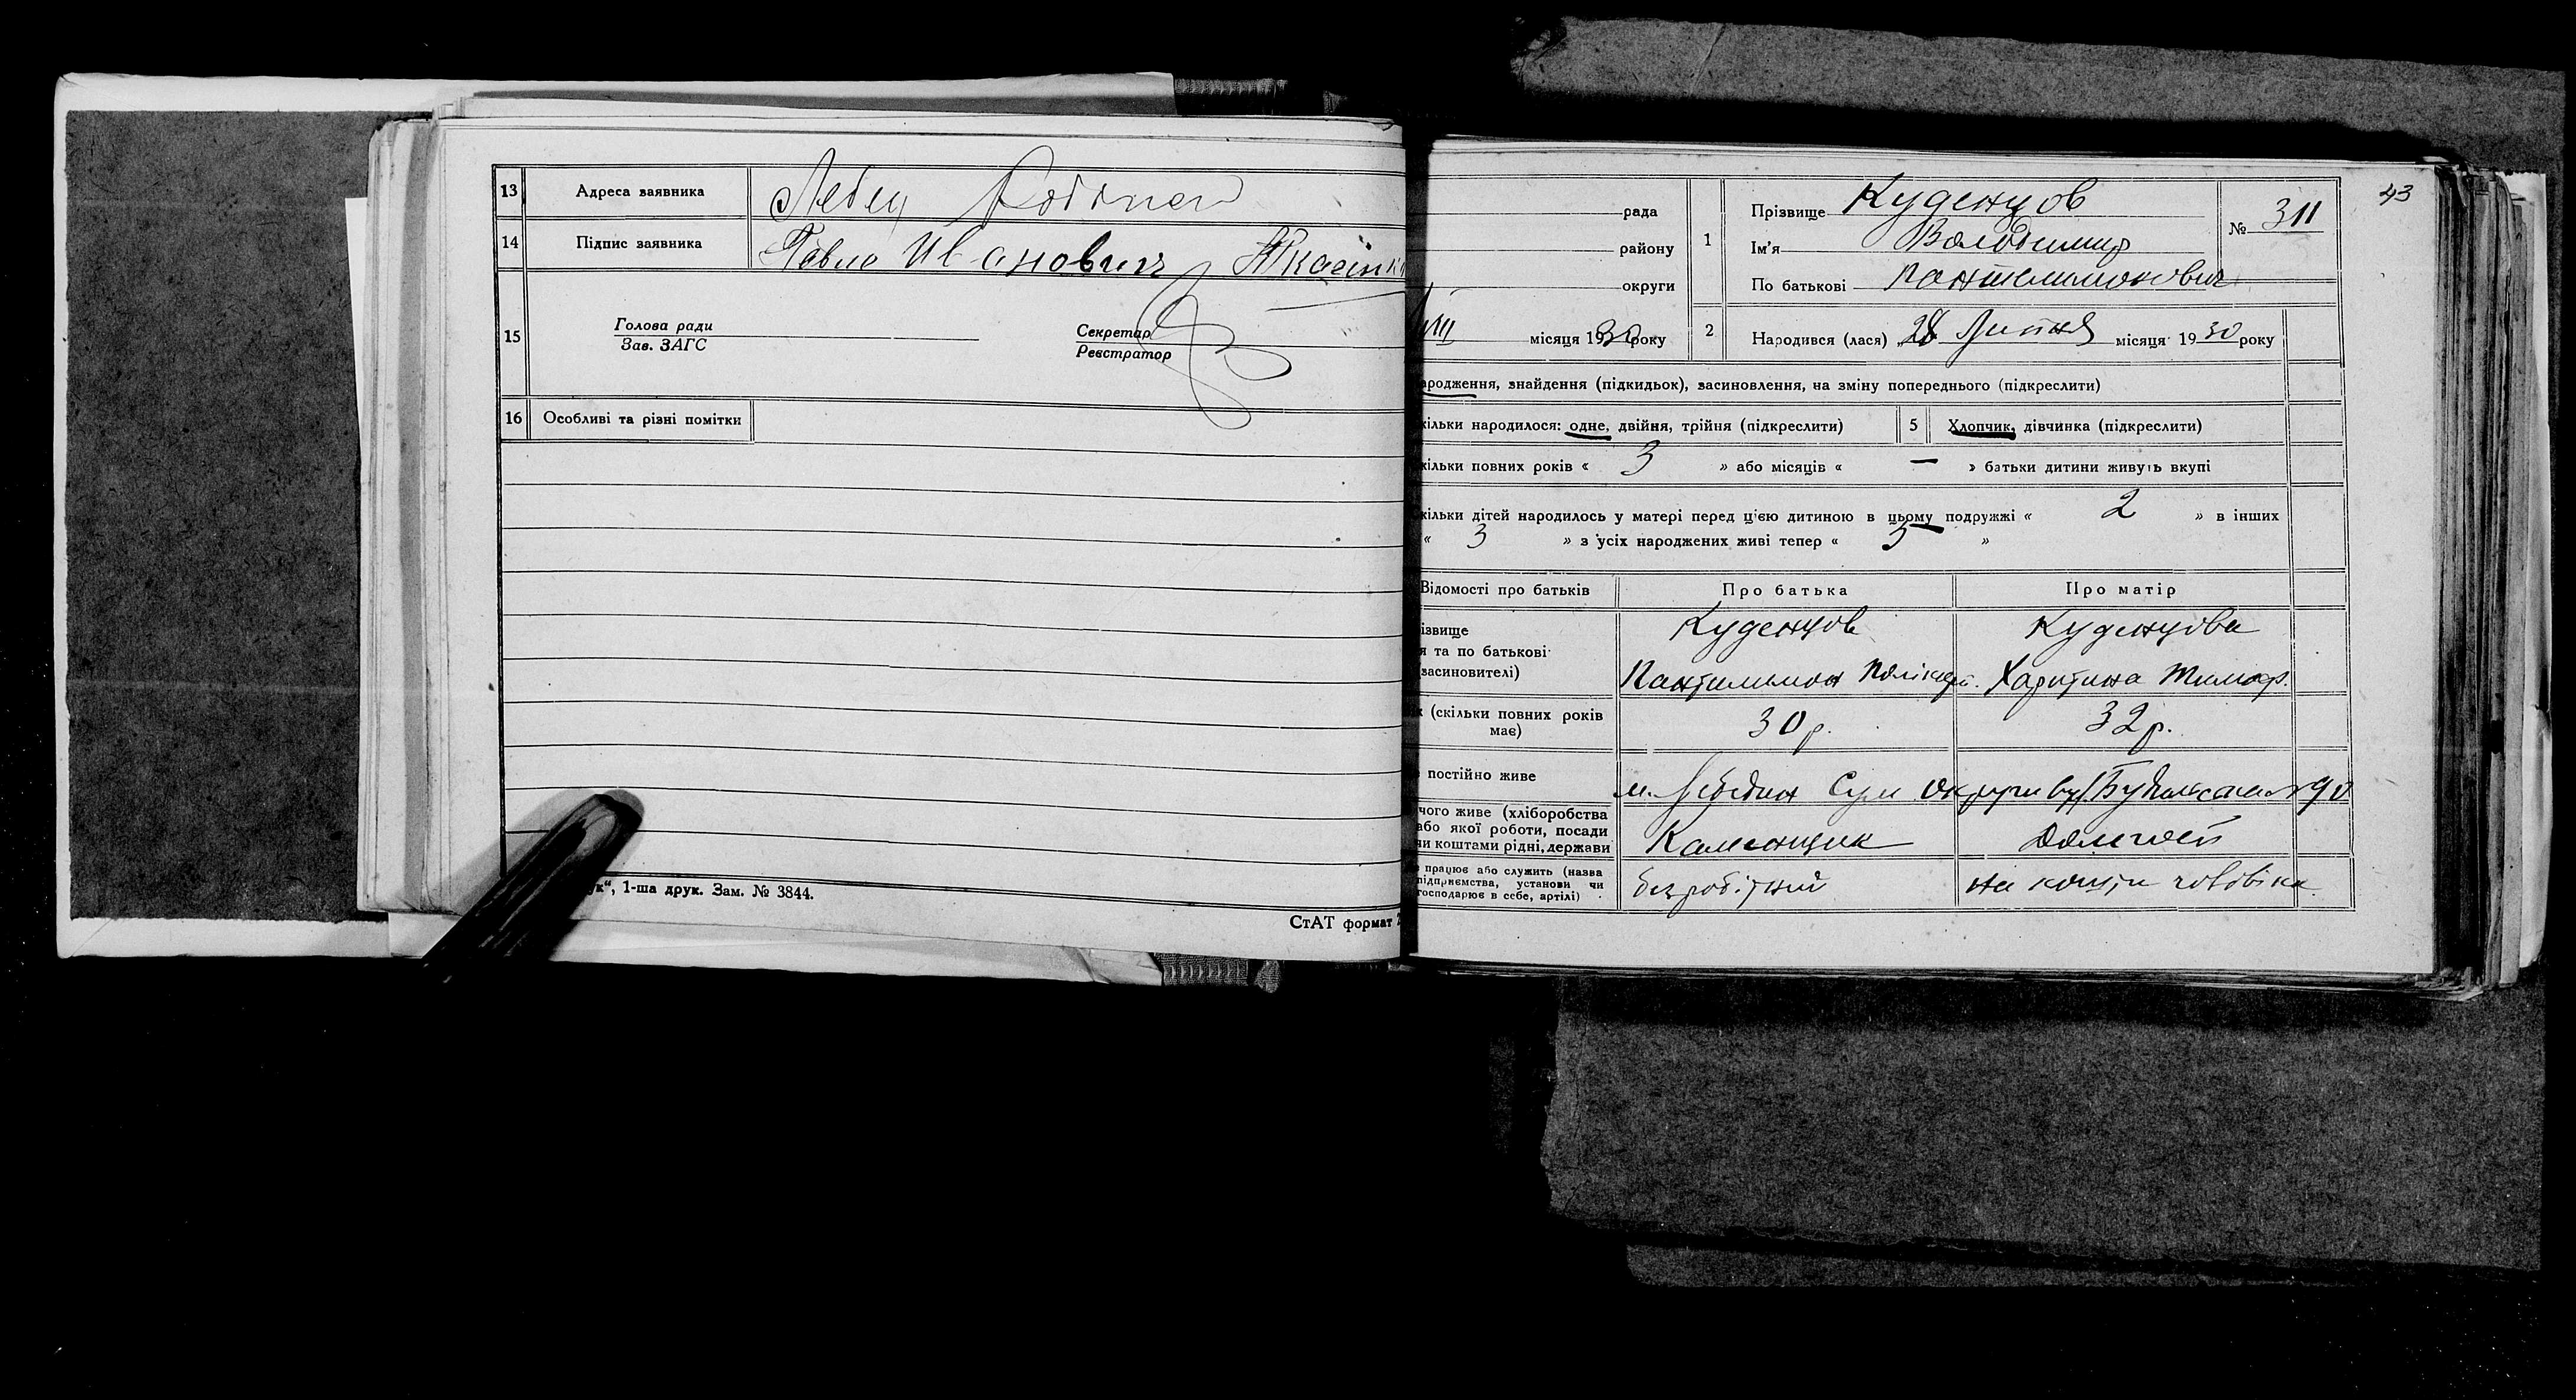 13 Адреса заявника
14 Підпис заявника Павло Ивановичъ
15 Голова ради
Зав. ЗАГС
Секретар
Реєстратор
16 Особливі та різні помітки
ук“, 1-ша друк. Зам. № 3844.
СтАТ формат
43
рада
району
округи
VIII місяця 1930 року
1 Прізвище Куденцов
Ім’я Володимир
По батькові Пантелимонович
№ 311
2 Народився (лася) „28 Липня місяця 1930 року
ародження, знайдення (підкидьок), засиновлення, на зміну попереднього (підкреслити)
кільки народилося: одне, двійня, трійня (підкреслити) 5 Хлопчик, дівчинка (підкреслити)
кільки повних років « 3 » або місяців « — » батьки дитини живуть вкупі
кільки дітей народилось у матері перед цією дитиною в цьому подружжі « 2 » в інших
« 3 » з усіх народжених живі тепер « 5 »
Відомості про батьків Про батька Про матір
ізвище Куденцов Куденцова
я та по батькові
засиновителі) Пантилимон Полікарп. Харитина Тимоф.
к (скільки повних років має) 30 р. 32 р.
постійно живе м. Лебедин Сум округи вул. 90
чого живе (хліборобства
або якої роботи, посади
чи коштами рідні, держави Каменщик Домгосп
працює або служить (назва
підприємства, установи чи
господарює в себе, артілі) безробітний на кошти чоловіка